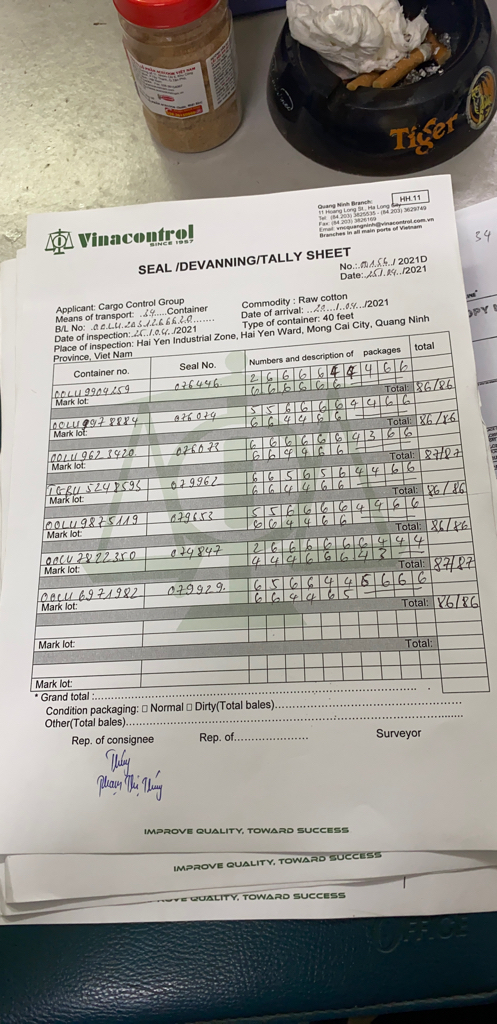 Tiger
Vinacontrol
SINCE 1957
HH.11
Quang Ninh Branch:
11 Hoang Long St., Ha Long City
Tel: (84.203) 3825535 - (84.203) 3629749
Fax: (84.203) 3826169
Email: vncquangninh@vinacontrol.com.vn
Branches in all main ports of Vietnam
SEAL /DEVANNING/TALLY SHEET
No.: 00154 / 2021D
Date: 25/04/2021
Applicant: Cargo Control Group
Commodity : Raw cotton
Means of transport: 24 Container
Date of arrival: /04/2021
B/L No:
Type of container: 40 feet
Date of inspection: 25/04/2021
Place of inspection: Hai Yen Industrial Zone, Hai Yen Ward, Mong Cai City, Quang Ninh
Province, Viet Nam
Container no. Seal No. Numbers and description of packages total
OOLU9904259 076446 2 6 6 6 6 6 4 4 4 6 6
Mark lot: 6 6 6 6 6 6 Total: 86/86
078884 076074 5 5 6 6 6 6 4 4 4 6 6
Mark lot: 6 6 4 4 6 6 Total: 86/86
OOLU 9623920 076073 6 6 6 6 6 6 4 3 6 6
Mark lot: 6 6 4 4 6 6 Total: 87/87
5248593 079962 6 6 5 6 5 6 4 4 6 6
Mark lot: 6 6 4 4 6 6 Total: 86/86
OOLU9875119 079653 5 5 6 6 6 6 4 4 6 6
Mark lot: 6 6 4 4 6 6 Total: 86/86
OOLU7822350 074847 2 6 6 6 6 6 6 4 4 4
Mark lot: 4 4 4 6 6 6 4 3 Total: 87/87
OOLU6971982 079929 6 5 6 6 4 4 6 6 6 6
Mark lot: 6 6 4 4 6 5 Total: 86/86
Mark lot: Total:
Mark lot:
* Grand total :
Condition packaging: □ Normal □ Dirty(Total bales)
Other(Total bales)
Rep. of consignee Rep. of Surveyor
Thúy
Phạm Thị Thúy
IMPROVE QUALITY, TOWARD SUCCESS
IMPROVE QUALITY, TOWARD SUCCESS
QUALITY, TOWARD SUCCESS
34